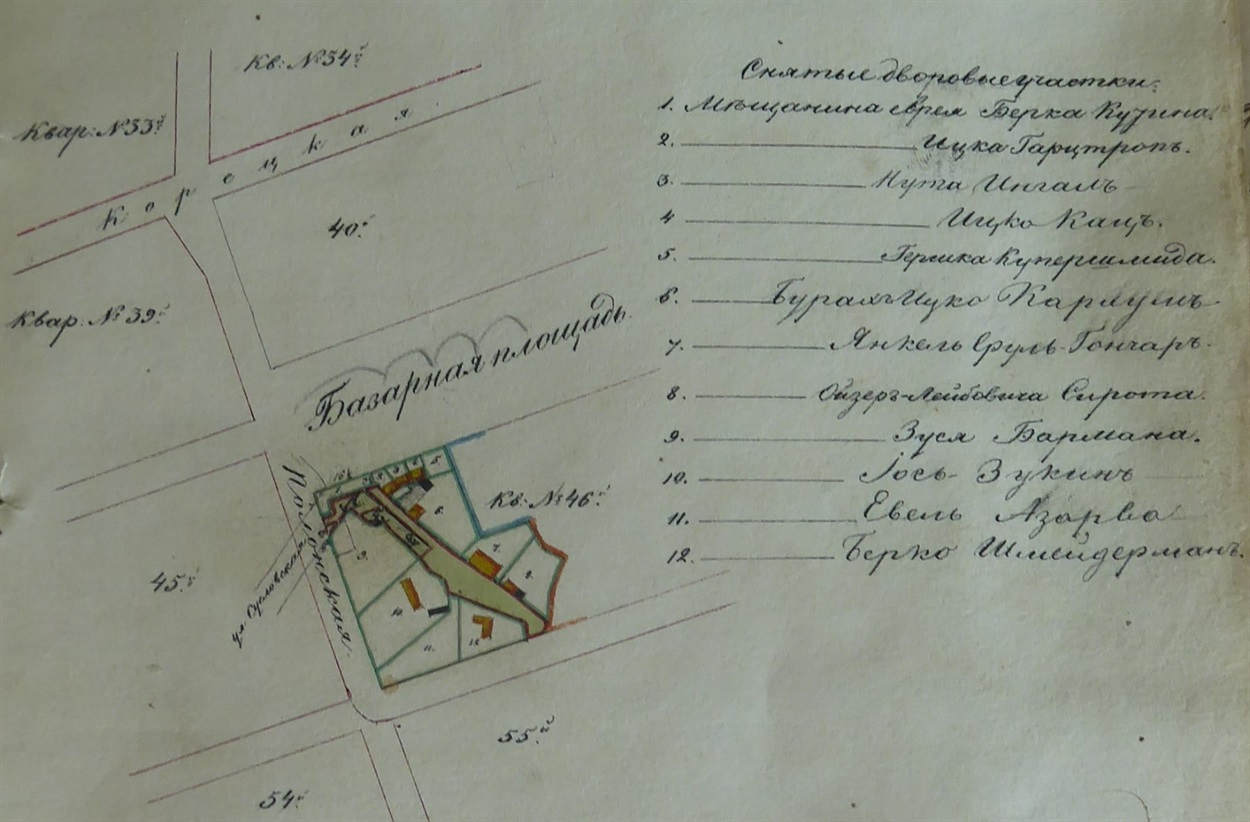 Кв: № 34й
Квар: № 33й
Корецкая
40й
Квар. № 39й
Базарная площадь.
Полонская
ул. Сусловская
Кв: № 46й
45й
6.
7.
8.
9.
10.
11.
12.
55й
54й
Снятые дворовые участки:
1. Мѣщанина еврея Берка Кузина.
2. Ицка Гарцтропъ.
3. Нута Ингалъ
4 Ицко Кацъ.
5. Гершка Купершмида.
6. Ицко
7. Янкель Сруль-Гончаръ.
8 Ойзеръ-Лейбовича Сирота.
9. Зуся Бармана.
10. Іось-Зукинъ
11. Евель Азарва
12. Берко Шмейдерманъ.